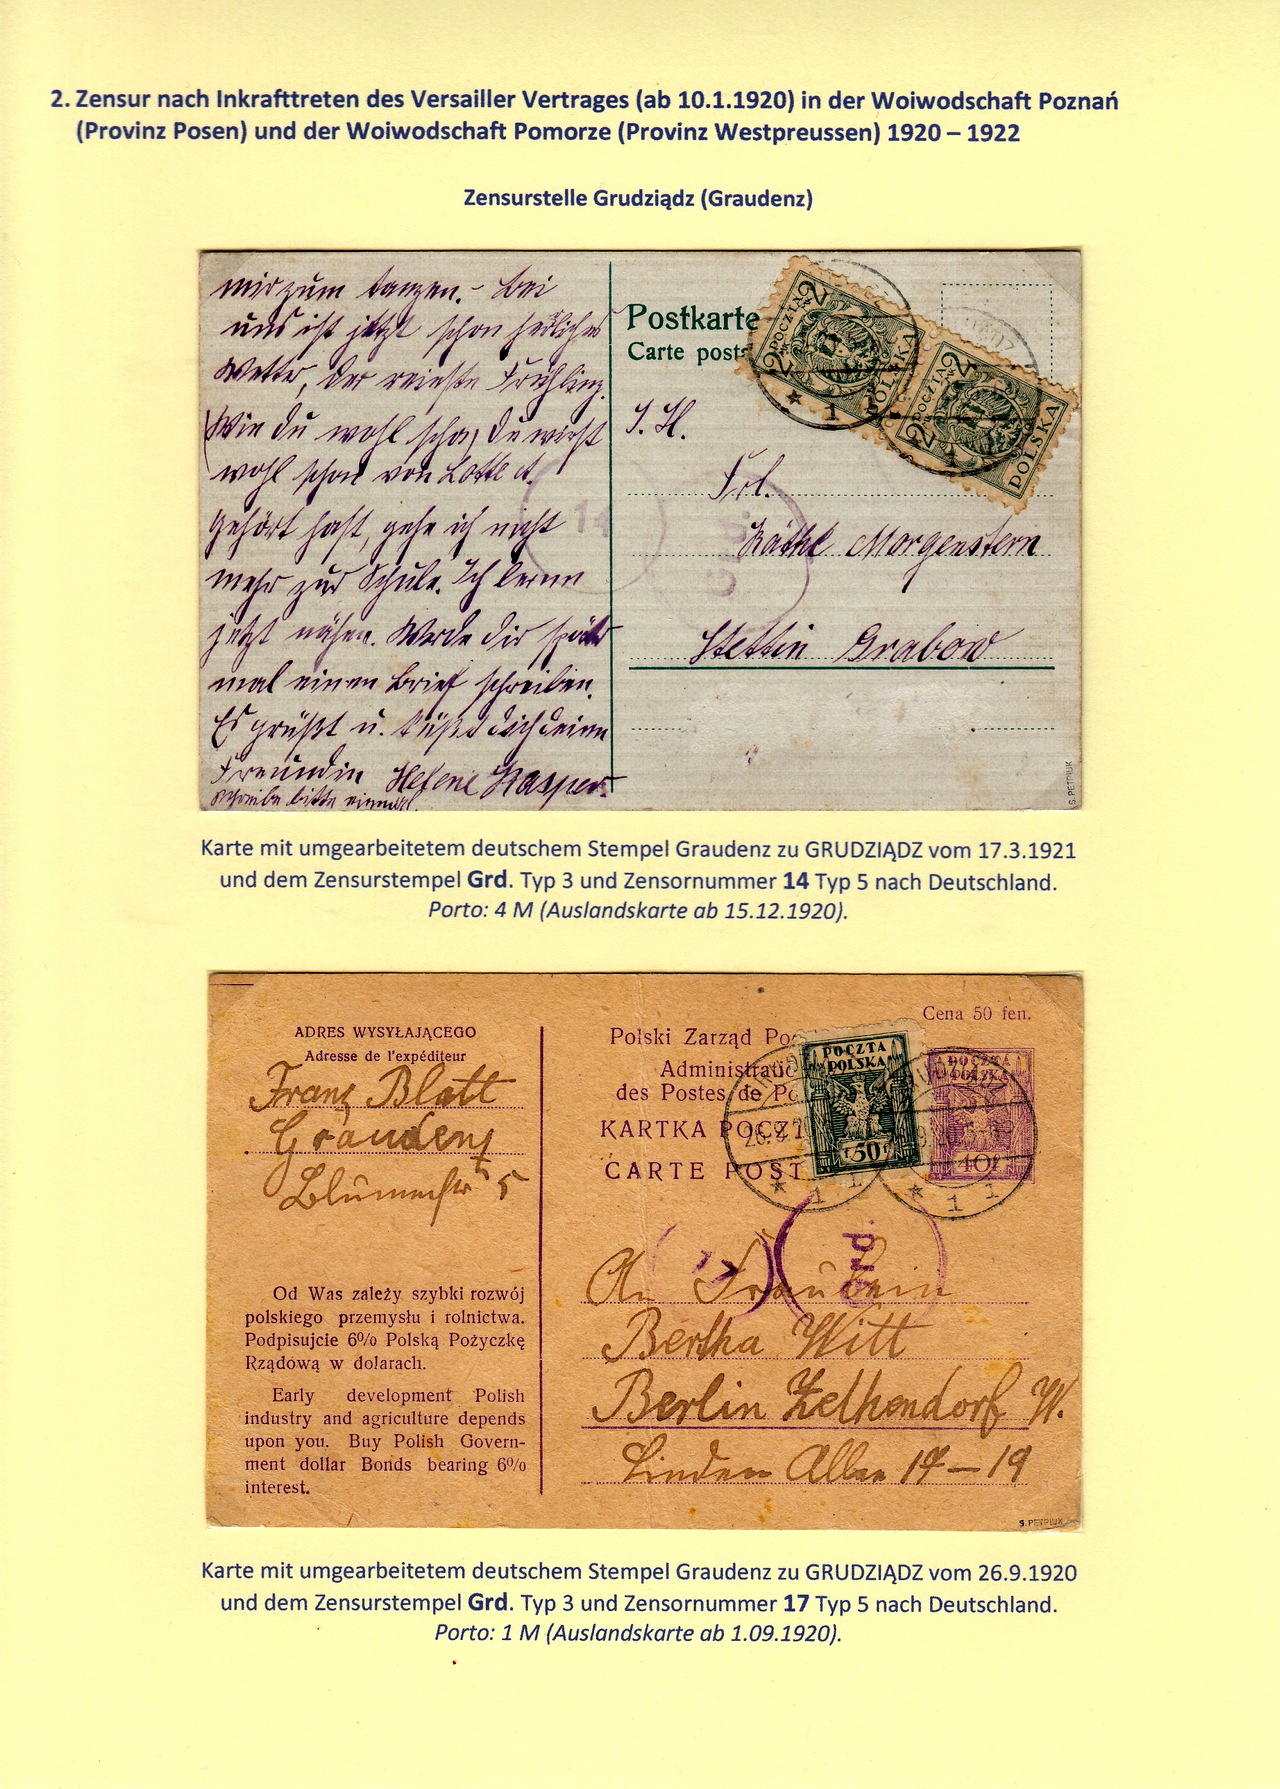 2. Zensur nach Inkrafttreten des Versailler Vertrages (ab 10.1.1920) in der Woiwodschaft Poznań
(Provinz Posen) und der Woiwodschaft Pomorze (Provinz Westpreussen) 1920 – 1922
Zensurstelle Grudziądz (Graudenz)
mir zum tanzen.- Bei
uns ist jetzt schon herliches
Wetter, der reinste Frühling.
Wie du wohl scho, du wirst
wohl schon von Lotte
gehört hast, gehe ich nicht
mehr zur Schule. Ich lerne
jetzt nähen. Werde dir später
mal einen Brief schreiben.
Es grüßt u. küßt dich deine
Freundin Helene Kasper.
Schreibe bitte einmal.
Postkarte
Carte posta
2 POCZTA 2
2 POLSKA
2 POCZTA 2
2 POLSKA
* 1
14
Grd.
Frl.
Käthe Morgenstern
Stettin Grabow
S. PETRIUK
Karte mit umgearbeitetem deutschem Stempel Graudenz zu GRUDZIĄDZ vom 17.3.1921
und dem Zensurstempel Grd. Typ 3 und Zensornummer 14 Typ 5 nach Deutschland.
Porto: 4 M (Auslandskarte ab 15.12.1920).
Cena 50 fen.
ADRES WYSYŁAJĄCEGO
Adresse de l'expéditeur
Franz Blatt
Graudenz
Blumenstr 5
Polski Zarząd Poc
Administratio
des Postes de Po
KARTKA POCZT
CARTE POST
POCZTA
POLSKA
50 f
POCZTA
POLSKA
40 f
26.9.2
* 1 1
* 1 1
17
Grd.
Od Was zależy szybki rozwój
polskiego przemysłu i rolnictwa.
Podpisujcie 6% Polską Pożyczkę
Rządową w dolarach.
Early development Polish
industry and agriculture depends
upon you. Buy Polish Govern-
ment dollar Bonds bearing 6%
interest.
An Fräulein
Bertha Witt
Berlin Zelhendorf W.
Linden Allee 17-19
S. PETRIUK
Karte mit umgearbeitetem deutschem Stempel Graudenz zu GRUDZIĄDZ vom 26.9.1920
und dem Zensurstempel Grd. Typ 3 und Zensornummer 17 Typ 5 nach Deutschland.
Porto: 1 M (Auslandskarte ab 1.09.1920).